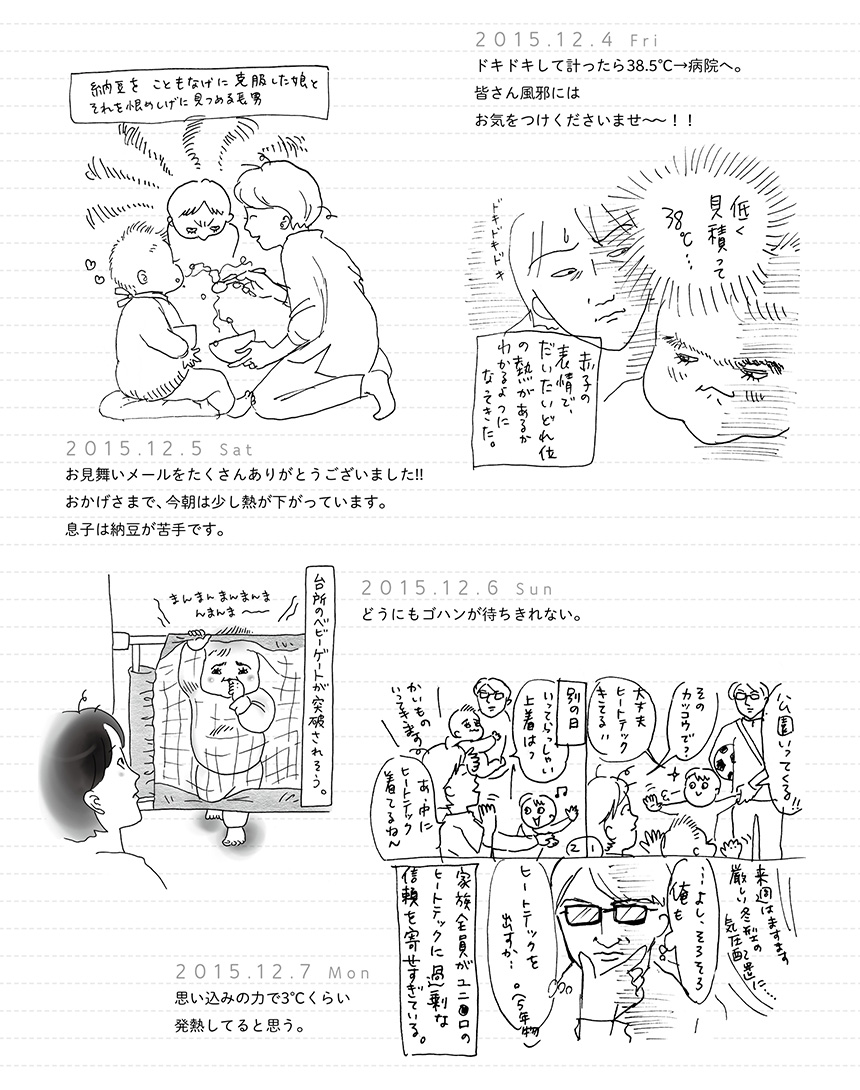 2015.12.4 Fri
ドキドキして計ったら38.5℃→病院へ。
皆さん風邪には
お気をつけくださいませ〜〜！！
低く
見積って
38℃…
ドキドキドキドキ
赤子の
表情で、
だいたいどれ位
の熱があるか
わかるように
なってきた。
納豆を こともなげに 克服した娘と
それを恨めしげに見つめる長男
2015.12.5 Sat
お見舞いメールをたくさんありがとうございました!!
おかげさまで、今朝は少し熱が下がっています。
息子は納豆が苦手です。
2015.12.6 Sun
どうにもゴハンが待ちきれない。
台所のベビーゲートが突破されそう。
まんまんまんまんま
んまんま〜〜
公園いってくる!!
その
カッコウで？
大丈夫
ヒートテック
きてる!!
1
2
別の日
いってらっしゃい
上着は？
かいもの
いってきますの。
あ、中に
ヒートテック
着てるね〜
来週はますます
厳しい冬型の
気圧配置に……
…よし、そろそろ
俺も
ヒートテックを
出すか…。
(5年物)
家族全員がユニ●ロの
ヒートテックに過剰な
信頼を寄せすぎている。
2015.12.7 Mon
思い込みの力で3℃くらい
発熱してると思う。